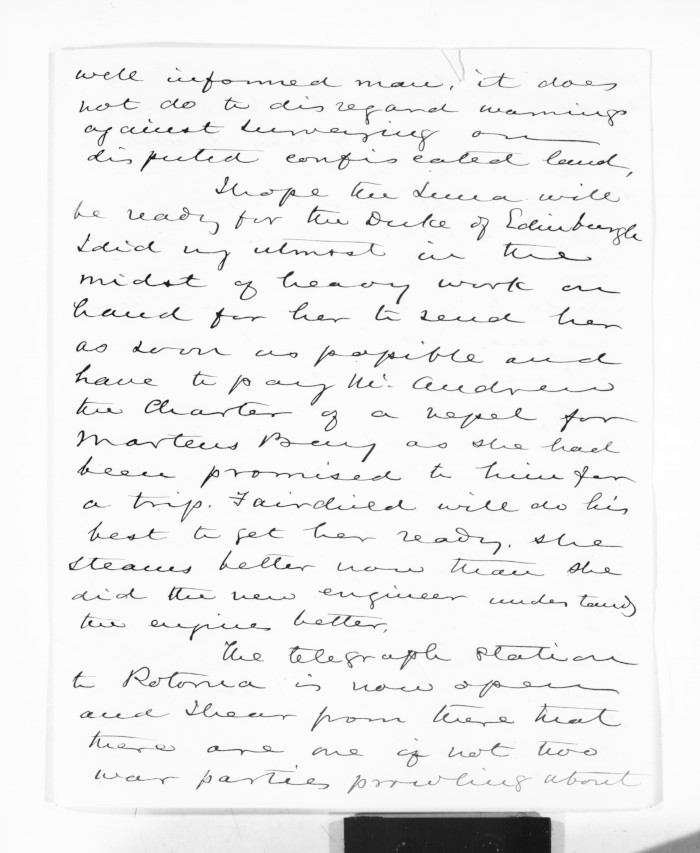 well informed man, it does
not do to disregard warnings
against surveying on
disputed confiscated land,
I hope the Luna will
be ready for the Duke of Edinburgh
I did my utmost in the
midst of heavy work on
hand for her to send her
as soon as possible and
have to pay Mr. Andrew
the Charter of a vessel for
Martens Bay as she had
been promised to him for
a trip. Fairchild will do his
best to get her ready. She
steams better now than she
did the new engineer understands
the engines better,
The telegraph station
to Rotorua is now open
and I hear from there that
there are one if not two
war parties prowling about